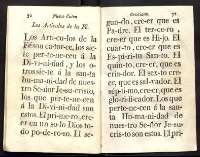 30
Los Articulos de la Fé.
Los Ar-ti-cu-los de la
Fé son ca-tor-ce, los sie-
te per-te-ne-cen á la
Di-vi-ni-dad, y los o-
tros sie-te á la san-ta
hu-ma-ni-dad de nues-
tro Se-ñor Je-su-cris-to,
los que per-te-ne-cen
á la Di-vi-ni-dad son
estos. El pri-me-ro, cre-
er en un so-lo Dios to-
do po-de-ro-so. El se-
Cristiana. 31
gun-do, cre-er que es
Pa-dre. El ter-ce-ro,
cre-er que es Hi-jo. El
cuar-to, cre-er que es
Es-pí-ri-tu San-to. El
quin-to, cre-er que es
cria-dor. El sex-to cre-
er, que es sal-va-dor. El
sép-ti-mo, cre-er, que es
glo-ri-fi-ca-dor. Los que
perte-ne-cen á la san-
ta Hu-ma-ni-dad de
nues-tro Se-ñor Je-su-
cris-to son estos. El pri-